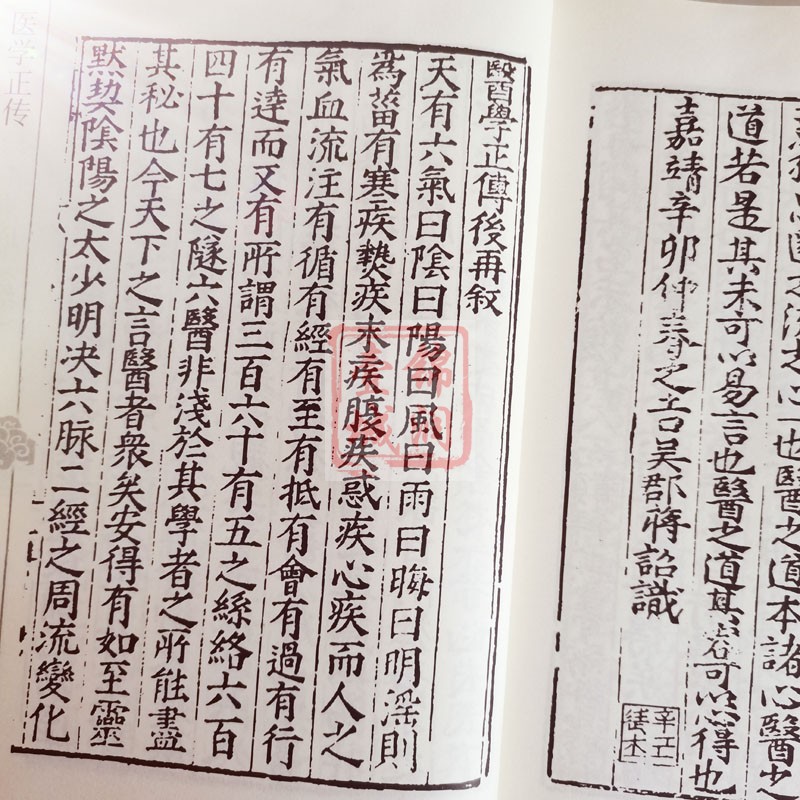 道若是其未可以易言也醫之道其者可以心得也
嘉靖辛卯仲春之吉吳郡蔣詔識
醫學正傳後再敘
天有六氣曰陰曰陽曰風曰雨曰晦曰明滛則
為菑有寒疾熱疾末疾腹疾惑疾心疾而人之
氣血流注有循有經有至有抵有會有過有行
有達而又有所謂三百六十有五之絲絡六百
四十有七之隧穴醫非淺於其學者之所能盡
其秘也今天下之言醫者衆矣安得有如至靈
默契陰陽之太少明决六脉二經之周流變化
医学正传